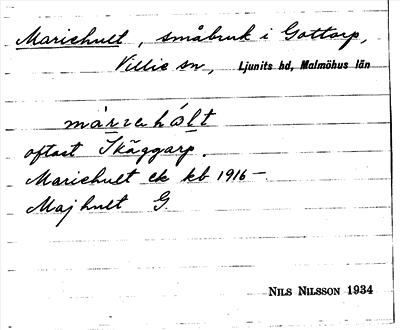 Mariehult, småbruk i Gottorp,
Villie sn, Ljunits hd, Malmöhus län
oftast Skäggarp.
Mariehult ek kb 1916–
Majhult G.
NILS NILSSON 1934